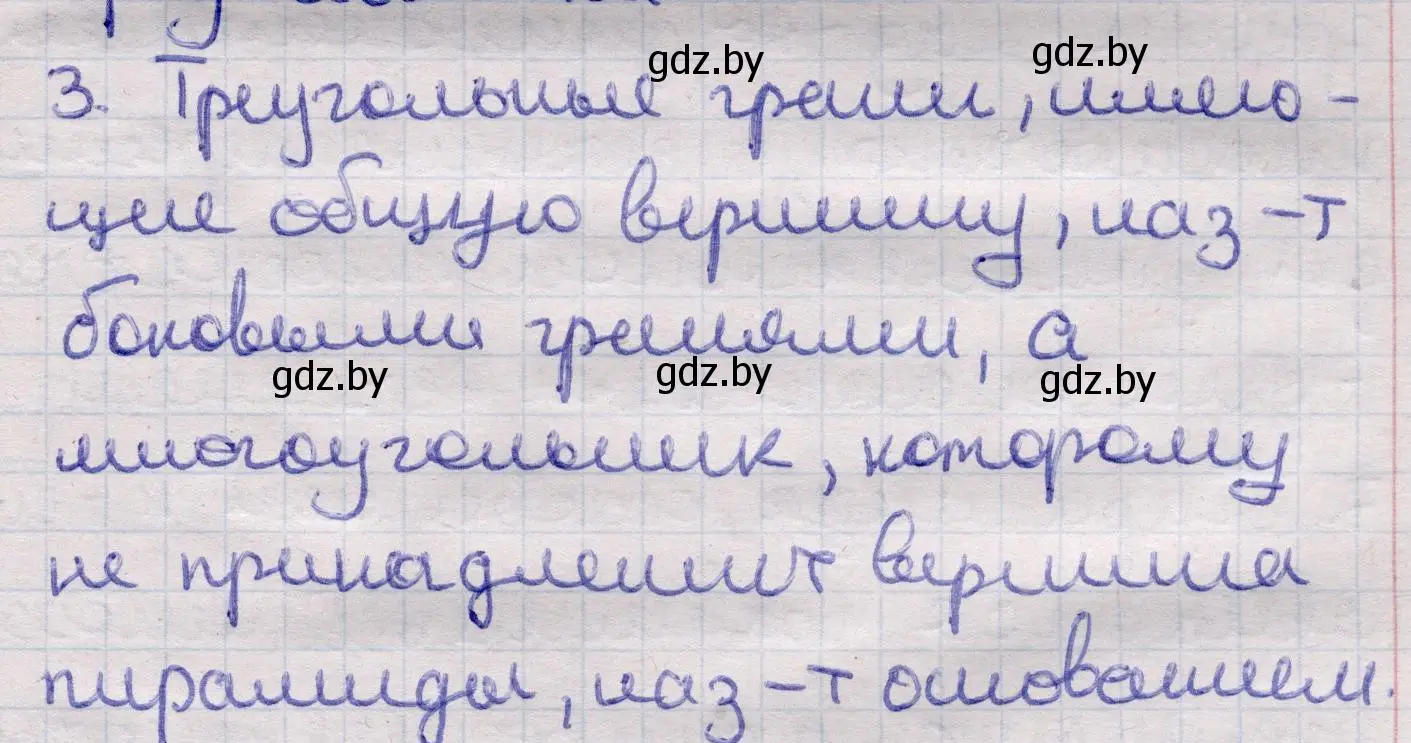 3. Треугольные грани, имею-
щие общую вершину, наз-т
боковыми гранями, а
многоугольник, которому
не принадлежит вершина
пирамиды, наз-т основанием.
gdz.by
gdz.by
gdz.by
gdz.by
gdz.by